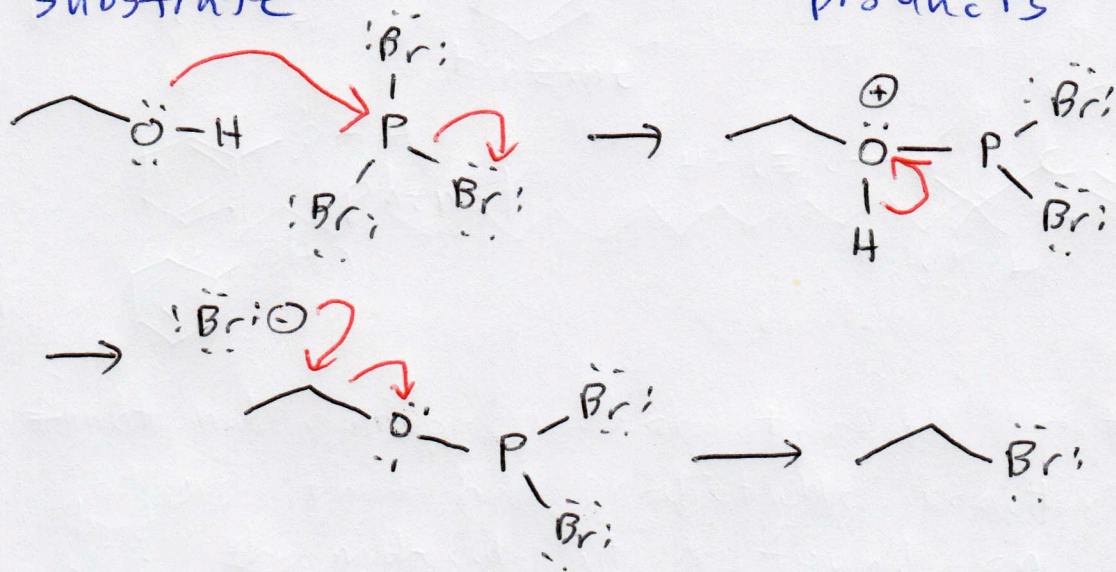 substrate products
:Br:
O-H P Br: :Br:
⊕ O P Br: Br: H
:Br:⊖
O P Br: Br:
Br: